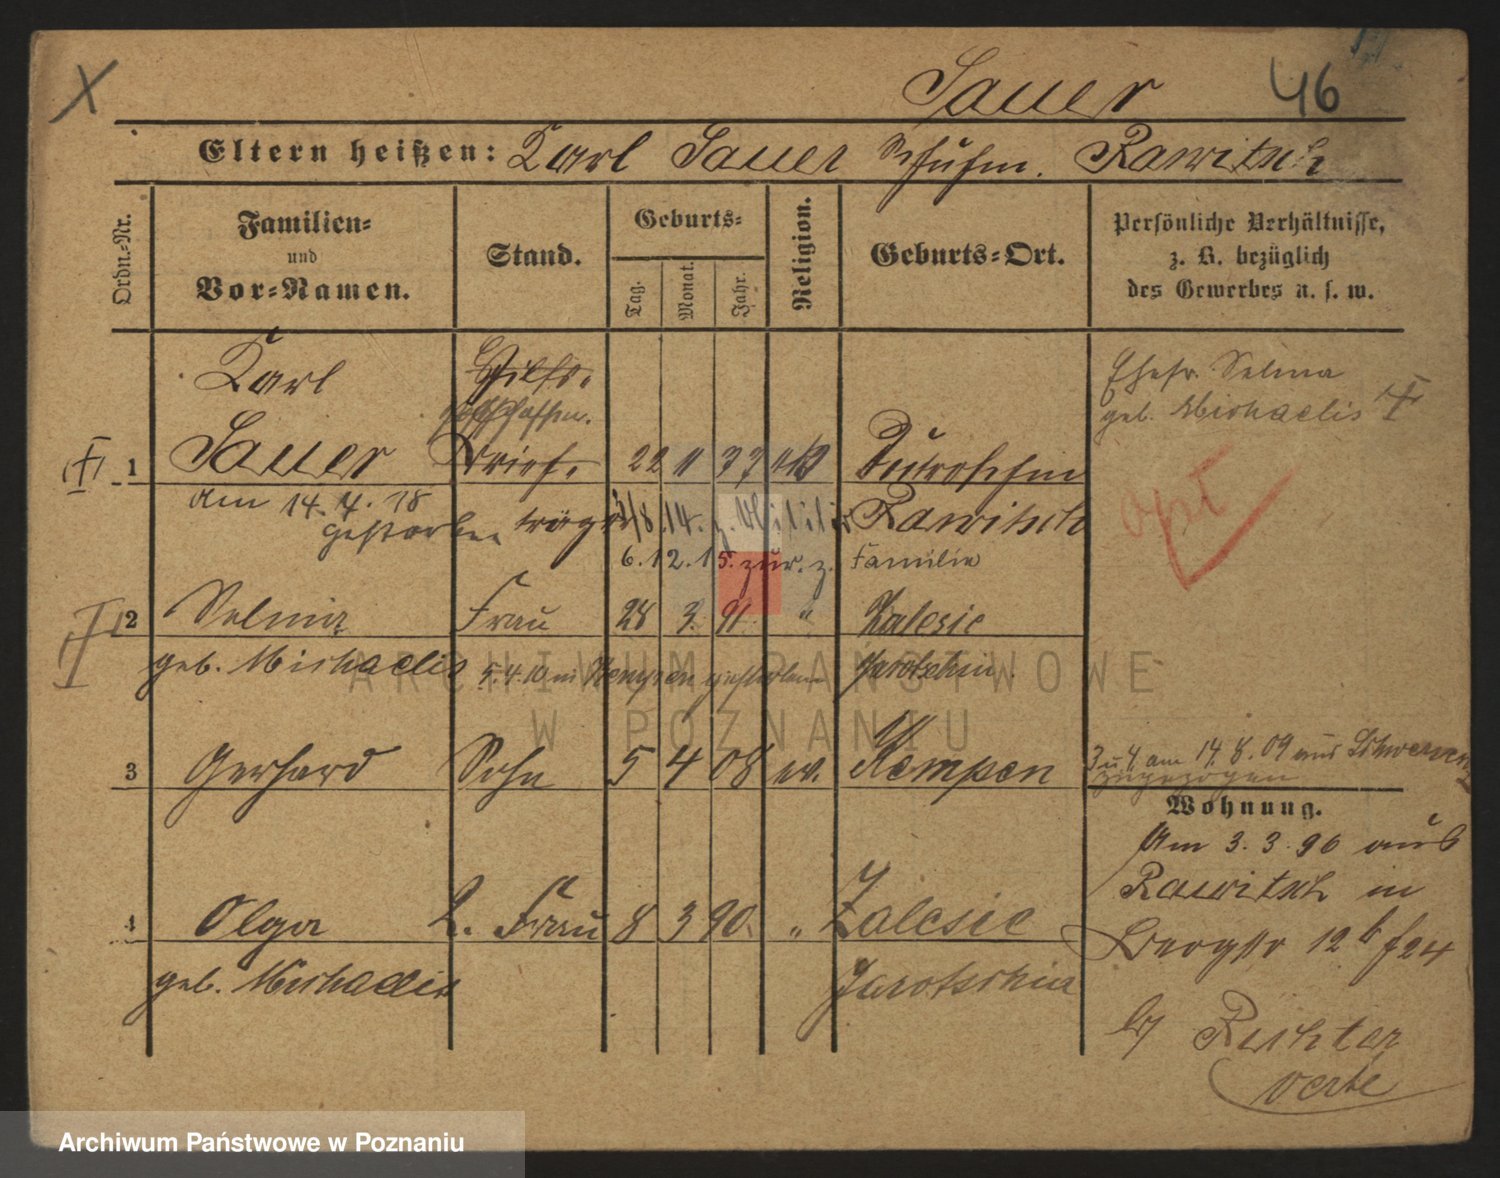 X
Sauer 46
Eltern heißen: Karl Sauer Schuhm. Rawitsch
Ordn.-Nr.
Familien-
und
Vor-Namen.
Stand.
Geburts-
Tag.
Monat.
Jahr.
Religion.
Geburts-Ort.
Persönliche Verhältnisse,
z. B. bezüglich
des Gewerbes u. s. w.
Karl
Ehefr. Selma
geb. Michaelis †
† 1 Sauer Brief- 22 11
am 14. 4. 18
gestorben träger /8.14. z. Militär Rawitsch
6.12.15. zur. z. Familie
2 Selma Frau 28 3. 91. " Zalesie
geb. Michaelis 5.4.10 in Kempen gestorben Jarotschin.
3 Gerhard Sohn 5 4 08 ev. Kempen
3 u 4 am 14. 8. 09 aus
zugezogen
Wohnung.
Am 3. 3. 96 aus
Rawitsch in
4 Olga 2. Frau 8 3 90. " Zalesie
12
geb. Michaelis Jarotschin
Richter
verte
ARCHIWUM PAŃSTWOWE
W POZNANIU
Archiwum Państwowe w Poznaniu